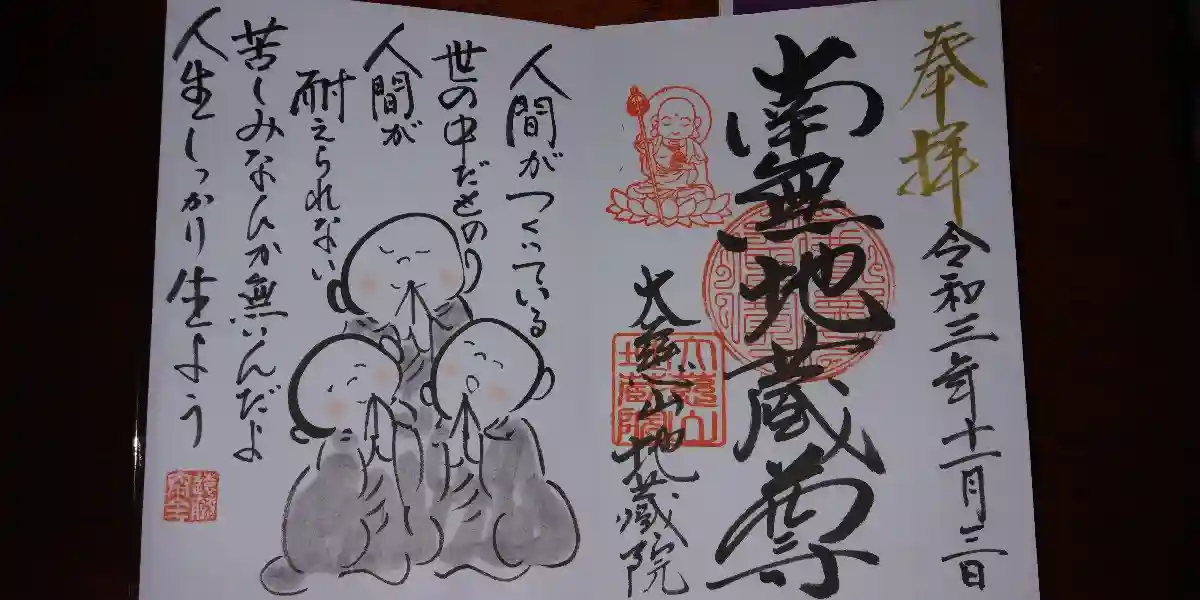 奉拝
令和三年十一月三日
南無地蔵尊
大慈山地蔵院
大慈山
地蔵院
人間がつくっている
世の中だもの
人間が
耐えられない
苦しみなんか無いんだよ
人生しっかり生よう